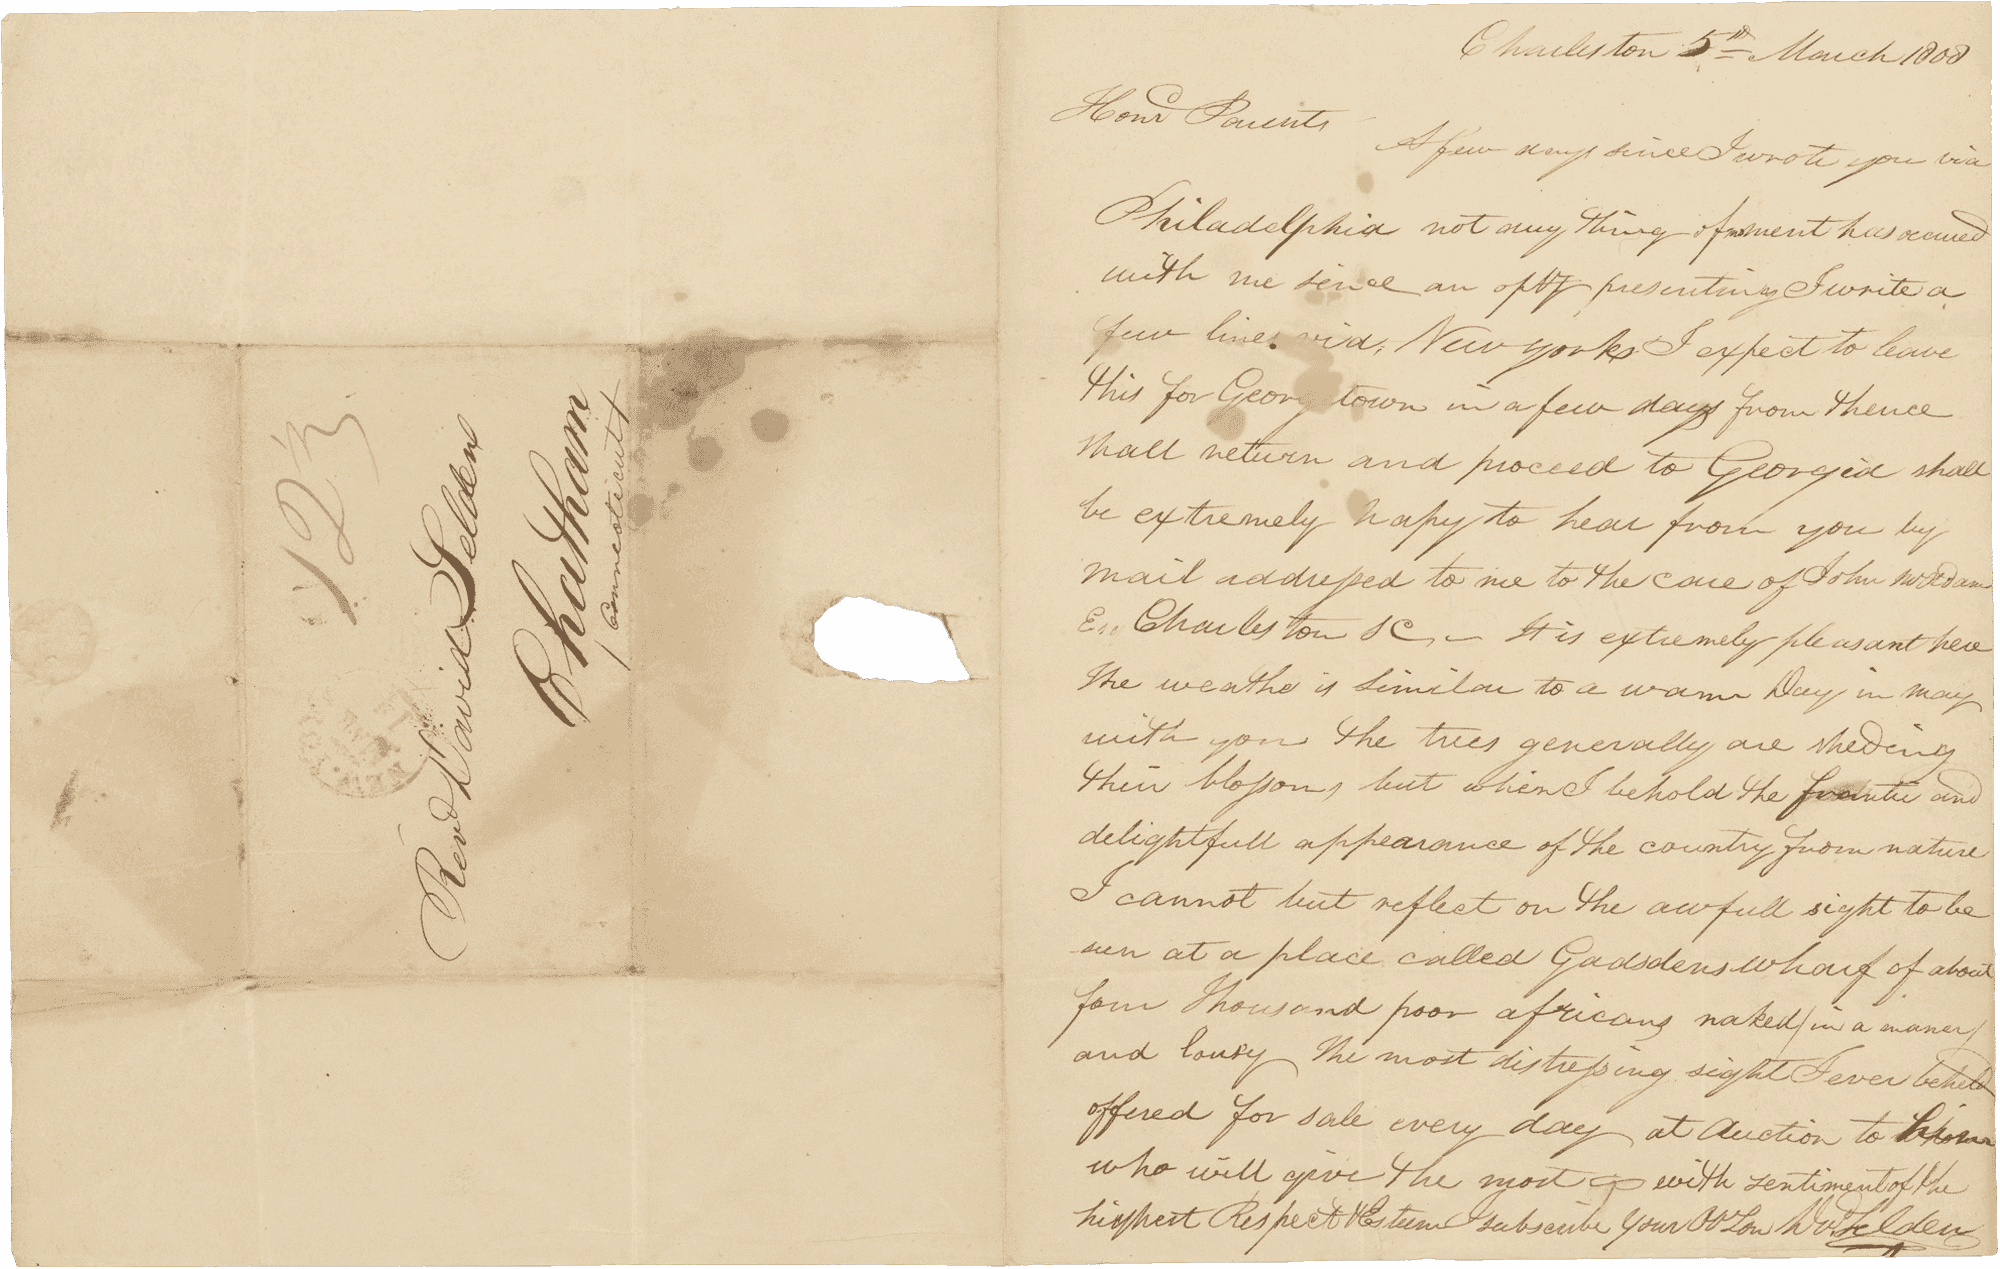 12½
Revd David Selden
Chatham
Connecticut
Charleston 5th March 1808
Hond Parents
A few days since I wrote you via
Philadelphia not any thing of moment has occured
with me since an opty presenting I write a
few lines via, New york I expect to leave
this for Georgtown in a few days from thence
shall return and proceed to Georgia shall
be extremely hapy to hear from you by
mail addressed to me to the care of John
Charleston SC, It is extremely pleasant here
the weathe is similar to a warm Day in may
with you the trees generally are sheding
their blossoms but when I behold the and
delightfull appearance of the country from nature
I cannot but reflect on the awfull sight to be
seen at a place called Gadsdens wharf of about
four thousand poor africans naked (in a maner)
and lousy the most distressing sight I ever beheld
offered for sale every day at Auction to him
who will give the most with sentiment of the
highest Respect & Esteem I subscribe your Ob Son Selden